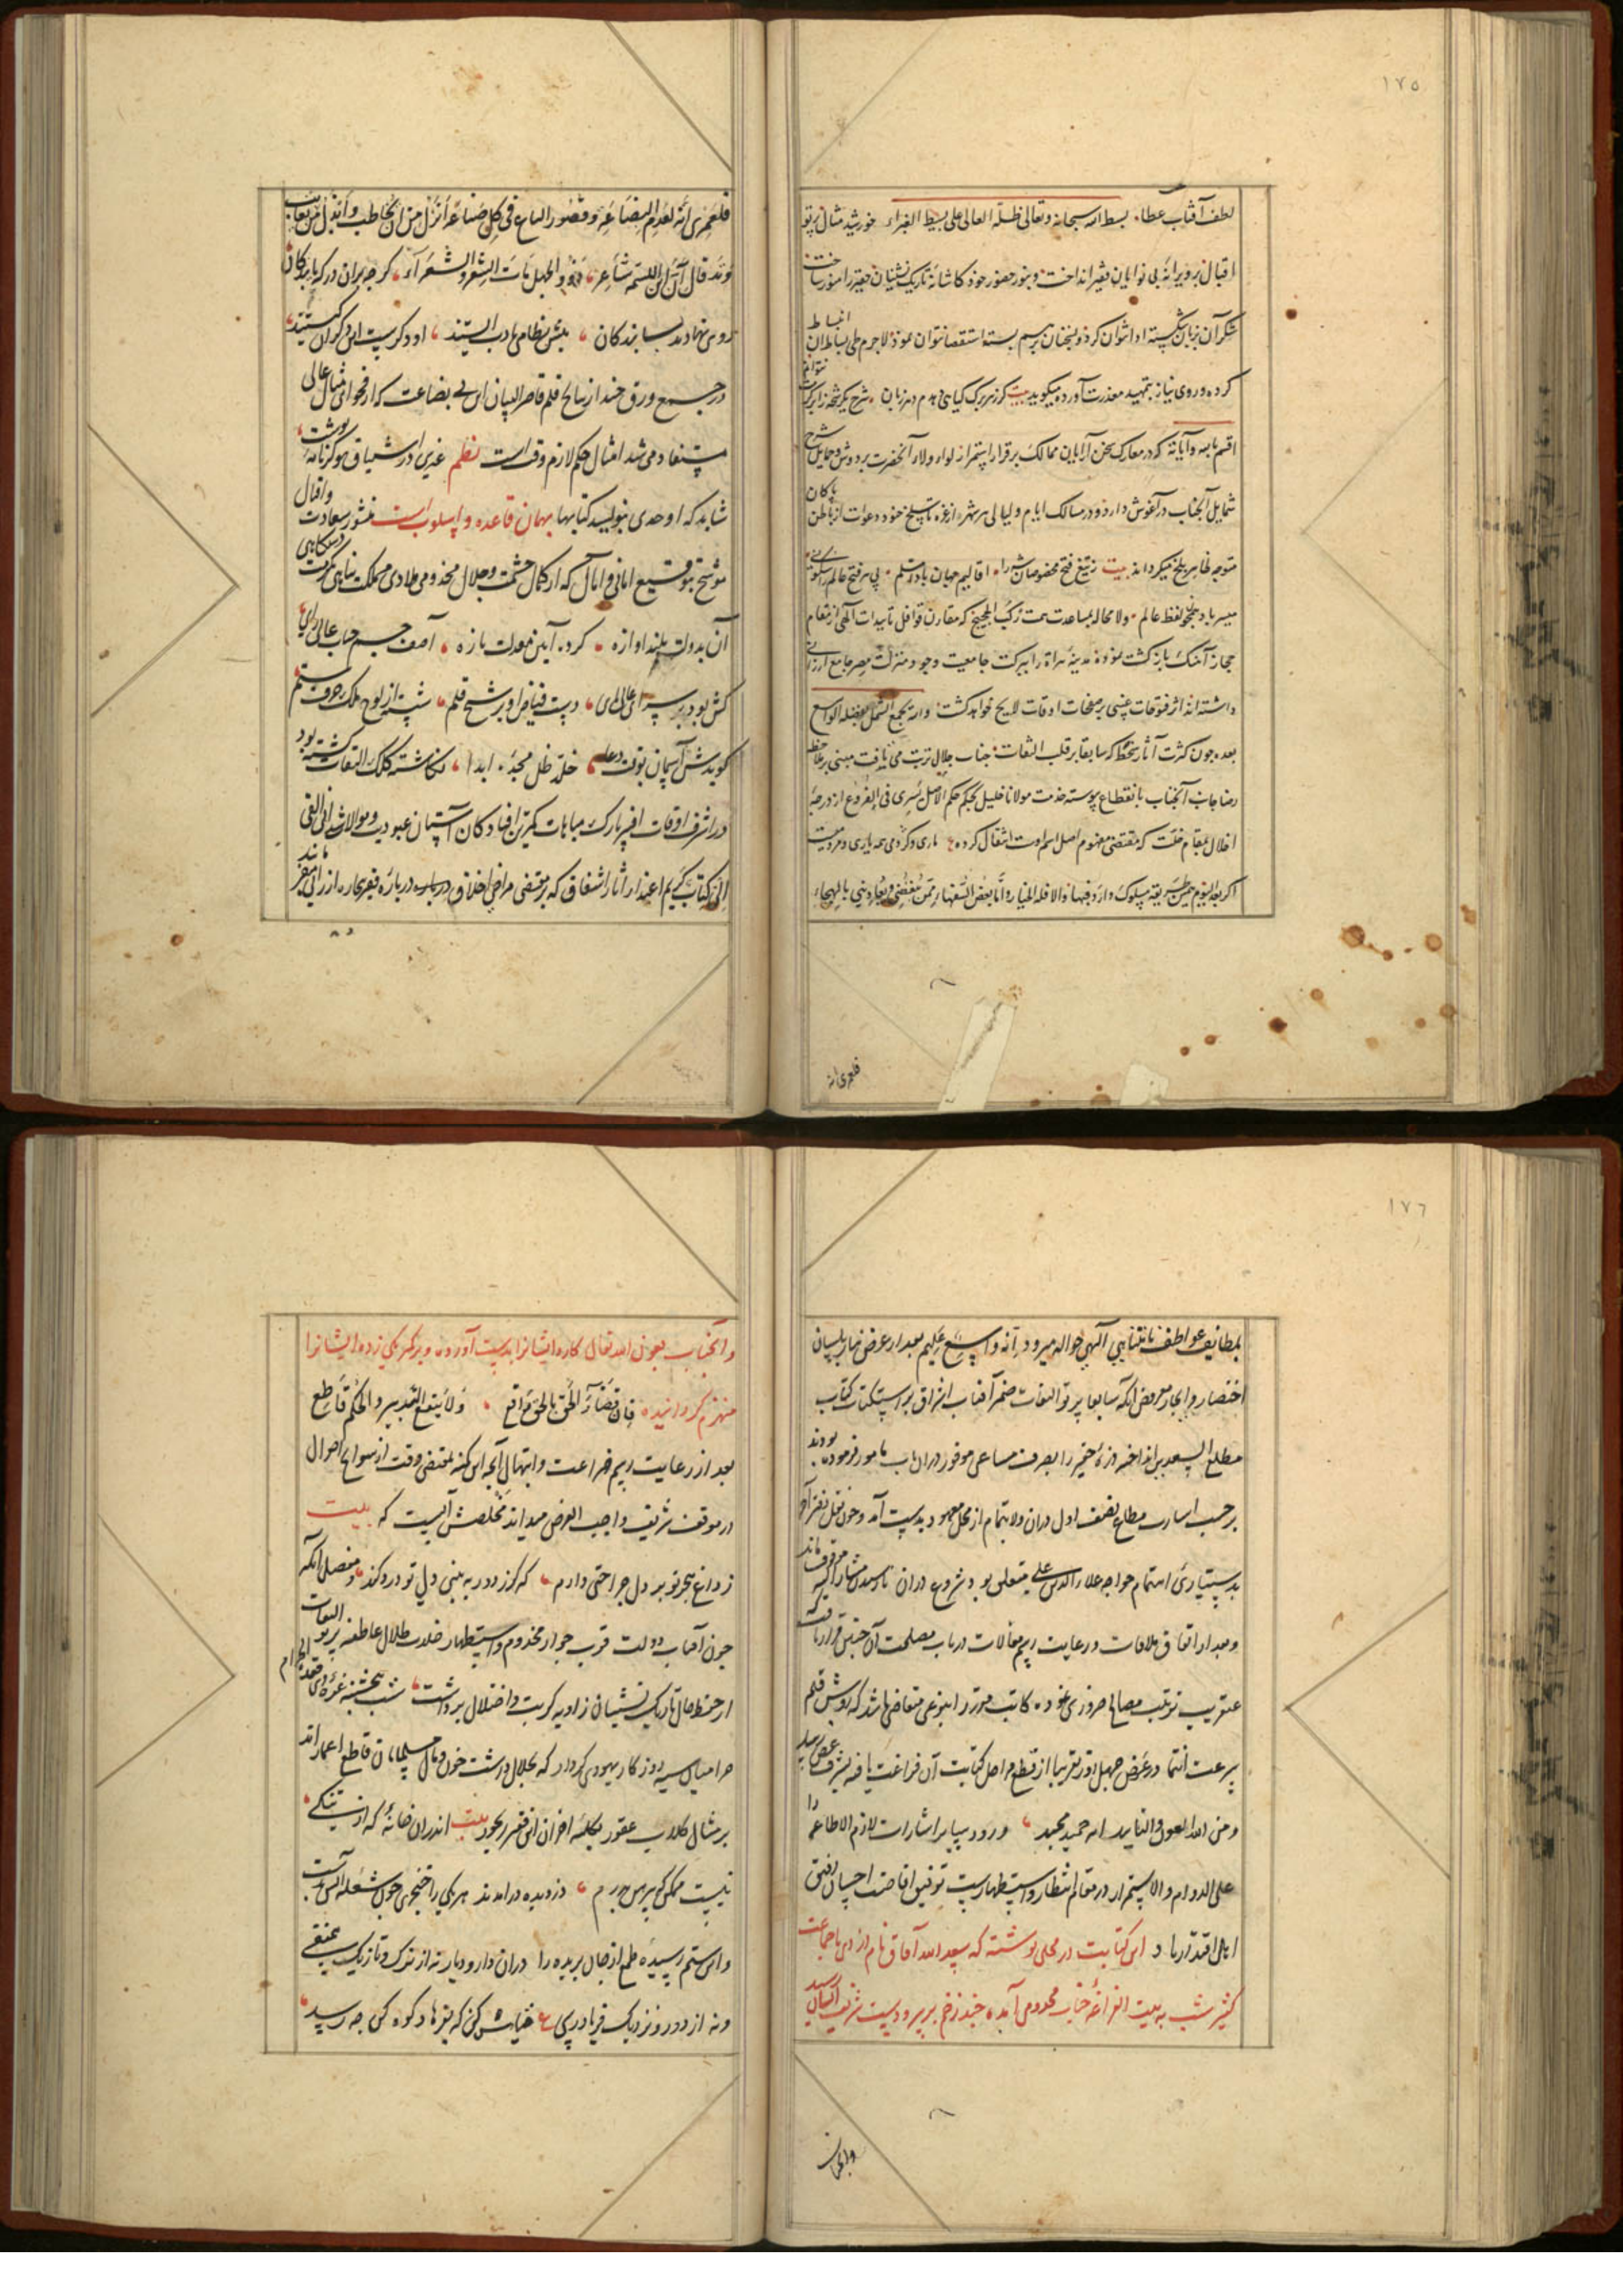 ١٧٥
لطف آفتاب عطاء بسط الله سبحانه وتعالی ظله العالی علی بسیط الغبراء خورشید مثال پرتو
اقبال بر ویرانهٔ بی نوایان فقیر انداخت و بنور حضور خود کاشانهٔ تاریک نشینان حقیر را منور ساخت
شکر آن بزبان شکسته ادا نتوان کرد و بسخنان برسم بسته استقصا نتوان نمود لاجرم طی بساط انبساط
کرده و روی نیاز بتمهید معذرت آورده میگوید بیت کرز هر برک کیاهی بدهم در زبان شرح یک شحه
اقسم بالله وآیاته که در معارک سخن آرایان ممالک برقرار استمرار لواء ولاء آنحضرت بر دوش و حمایل شرح
شمایل آنجناب در آغوش دارد و در مسالک ایام و لیالی هر شهر از غره تا سلخ خود دعوات از باطن پاکان
متوجه ظاهر بلخ میکرداند بیت ز تیغ فتح مخصوصان شه را اقالیم جهان بادا مسلم پی هر فتح عالم
میسر باد بلخ و لفظ عالم ولا محاله بمساعدت همت رکب الحجیج که مقارن قوافل تاییدات الهی از مقام
حجاز آهنک بازکشت نموده مدینهٔ هراة را ببرکت جامعیت وجود منزلت مصر جامع ارزانی
داشته اند اثر فتوحات غیبی بر صفحات اوقات لایح خواهد کشت والله یجمع الشمل بفضله الواسع
بعده چون کثرت آثار سخط که سابقا بر قلب التفات جناب جلال رتبت می یافت مبنی بر ملاحظه
رضا جانب آنجناب بانقطاع پیوسته خدمت مولانا خلیل بحکم حکم الاصل یسری فی الفروع از درجهٔ
اخلال بمقام خلت که مقتضی مفهوم اصل اسم اوست انتقال کرده ع یاری و کردمی همه یاری و مردمیست
اکر بعد الیوم همین طریقه مسلوک دارد فبها والا فله الخیار وانما بعض السفهاء ممن یبغضنی ویعادینی بالهجاء
فلعمری انه
فلعمری انه لعدم البضاعة وقصور الباع فی کل صناعة انزل من ان یخاطب وانذل من یعاتب
وقد قال آکل اللسمه شاعر ذوو الجهل مات الشعر والشعراء کرچه بران درکه پایندکان
روی نهادند ستایندکان پیش نظامی بادب ایستند او دکرست این دکران کیستند
در جمیع ورق چند از نتایج قلم قاصر البیان این بی بضاعت که از فحوای مثال عالی
مستفاد می شد امتثال حکم لازم وقت است نظم غیری ار در شیاق هوکر نامهٔ نوشت
شاید که اوحدی بنویسد کتابها بهمان قاعده و اسلوب است منشور سعادت و اقبال
موشح بتوقیع امانی و آمال که از کمال حشمت و جلال مخدومی ملاذی مملکت پناهی مکرمت دستکاهی
آن بدولت بلند اوازه کرد آیین معدلت تازه آصف جم جناب عالی رای
کش بود بر سپهر اعلی پای دست فیاض او برشح قلم شسته از لوح ملک حرف ستم
کویدش آسمان بوقت دعا خلد ظل مجده ابدا نکاشته کلک التفات کشته بود
در اشرف اوقات افسر تارک مباهات کمترین افتادکان آستان عبودیت و موالات شد انی القی
الی کتاب کریم اعتذار اثار اشفاق که بر مقتضی مراضی اخلاق دربارهٔ فقیر بیچاره ارزانی
١٧٦
بلطایف عواطف نامتناهی آلهی حواله میرود انه واسع علیم بعد از عرض نیاز بلسان
اختصار و ایجاز معروض آنکه سابقا پرتو التفات ضمیر آفتاب اشراق بر استکتاب کتاب
مطلع السعدین انداخته ذرهٔ حقیر را بصرف مساعی موفور دران باب مامور فرموده بودند
بر حسب اشارت مطاع نصف اول دران ولا بتمام از محل معهود بدست آمد و چون نقل دفتر آخر
بدستیاری اهتمام خواجه علاء الدین علی متعلق بود شروع دران تا رسیدن مشار الیه موقوف ماند
و بعد از اتفاق ملاقات و رعایت رسم مقالات در باب مصلحت آن چنین قرار یافت که
عنقریب ترتیب مصالح ضروری نموده کاتب مقرر را بنوعی متقاضی باشد که بروش قلم
سرعت انتما در عرض چهل روز تقریبا از قطع مراحل کتابت آن فراغت یافته بشرف عرض رسد
ومن الله العون والتایید انه حمید مجید ورود سایر اشارات لازم الاطاعه را
علی الدوام والاستمرار در مقام انتظار و استظهارست توفیق افاضت احسان رفیق
اهل اقتدار باد این کتابت در محلی نوشته که سعد الله آفاق نام دزدی با جماعت
کثیر شب به بیت الفراغهٔ جناب مخدومی آمده چند زخم بر سر و دست شریف ایشان رسید
وانجناب
وانجناب بعون الله تعالی کارد ایشانرا بدست آورده و بر کمر یکی زده ایشانرا
منهزم کردانیده فان قضاء الحق بالحق واقع ولا ینفع التدبیر والحکم قاطع
بعد از رعایت رسم ضراعت و ابتهال آنچه این کمینه بمقتضی وقت از سوانح احوال
در موقف شریف واجب العرض میداند مخلصش آنست که بیت
ز داغ هجر تو بر دل جراحتی دارم که کر ز دور به بینی دل تو درد کند و مفصل آنکه
چون آفتاب دولت قرب جوار مخدوم و استظهار ضلات ظلال عاطفه پرتو التفات
از خط حال تاریک نشینان زاویه کربت و اختلال برداشت شب پنجشنبه غرهٔ ذی قعدة الحرام
حرامیان سیه روزکار یهودی کردار که بحلال داشت خون و مال مسلمانان قاطع اعمارند
بر مثال کلاب عقور بکلبهٔ احزان این فقیر رنجور بیت اندران خانهٔ که از تنکی
نیست ممکن که پیرهن بدرم دزدیده درامدند هر یکی را خنجری چون شعلهٔ آتش بدست
و این ستم رسیدهٔ طمع از جان بریده را دران دار و دیار نه از ترک و تازیک شفیقی
و نه از دور و نزدیک فریاد رسی ع خیانتش کن که یتیمها و کوه کی چه رسید